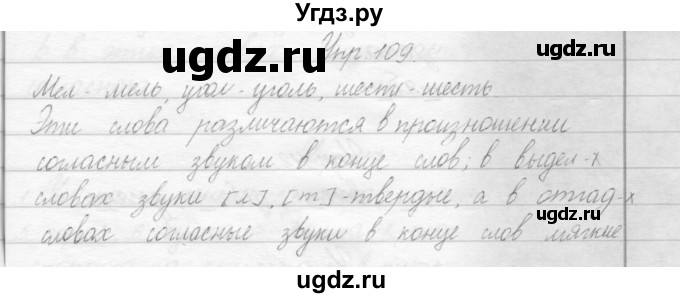 Угдз.ру
Упр 109.
Мел мель, угол - уголь, шест - шесть
Эти слова различаются в произношении
согласным звуком в конце слов; в выдел-х
словах звуки [л], [т] - твердые, а в отгад-х
словах согласные звуки в конце слов мягкие
ugdz.ru
ugdz.ru
ugdz.ru
ugdz.ru
ugdz.ru
ugdz.ru
ugdz.ru
ugdz.ru